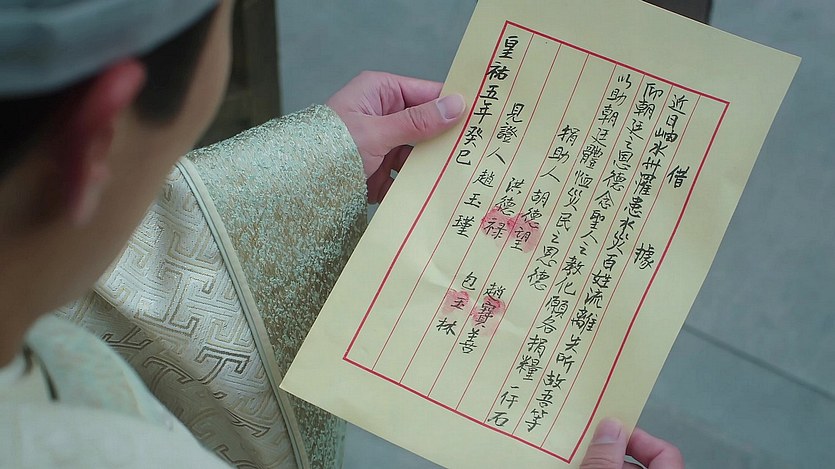 借據
近日岫水州罹患水災百姓流離失所故吾等
朝廷之恩德念聖人之教化願各捐糧一仟石
以助朝廷體恤災民之恩德
捐助人 胡德望 趙寶善
洪德禄 包玉林
見證人 趙玉瑾
皇祐五年癸巳